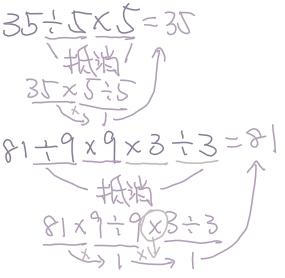 35÷5×5=35
抵消
35×5÷5
× 1
81÷9×9×3÷3=81
抵消
81×9÷9×3÷3
× 1 × 1